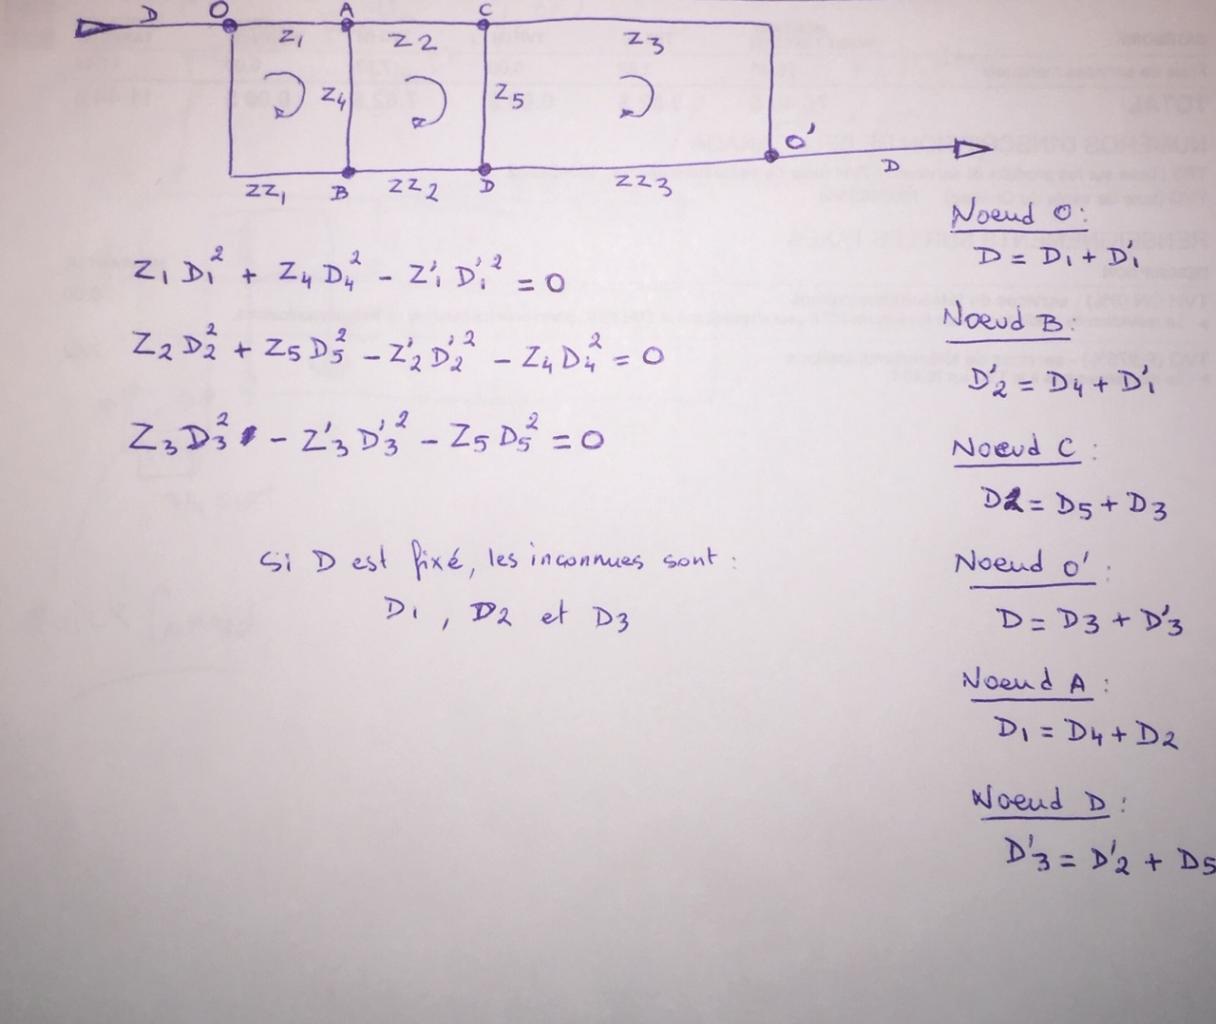 D O A C
Z1 Z2 Z3
Z4 Z5
O'
ZZ1 B ZZ2 D ZZ3 D
Z1 D1² + Z4 D4² - Z'1 D'1² = 0
Z2 D2² + Z5 D5² - Z'2 D'2² - Z4 D4² = 0
Z3 D3² - Z'3 D'3² - Z5 D5² = 0
Si D est fixé, les inconnues sont :
D1, D2 et D3
Noeud O:
D = D1 + D'1
Noeud B:
D'2 = D4 + D'1
Noeud C :
D2 = D5 + D3
Noeud O' :
D = D3 + D'3
Noeud A :
D1 = D4 + D2
Noeud D :
D'3 = D'2 + D5
TOTAL